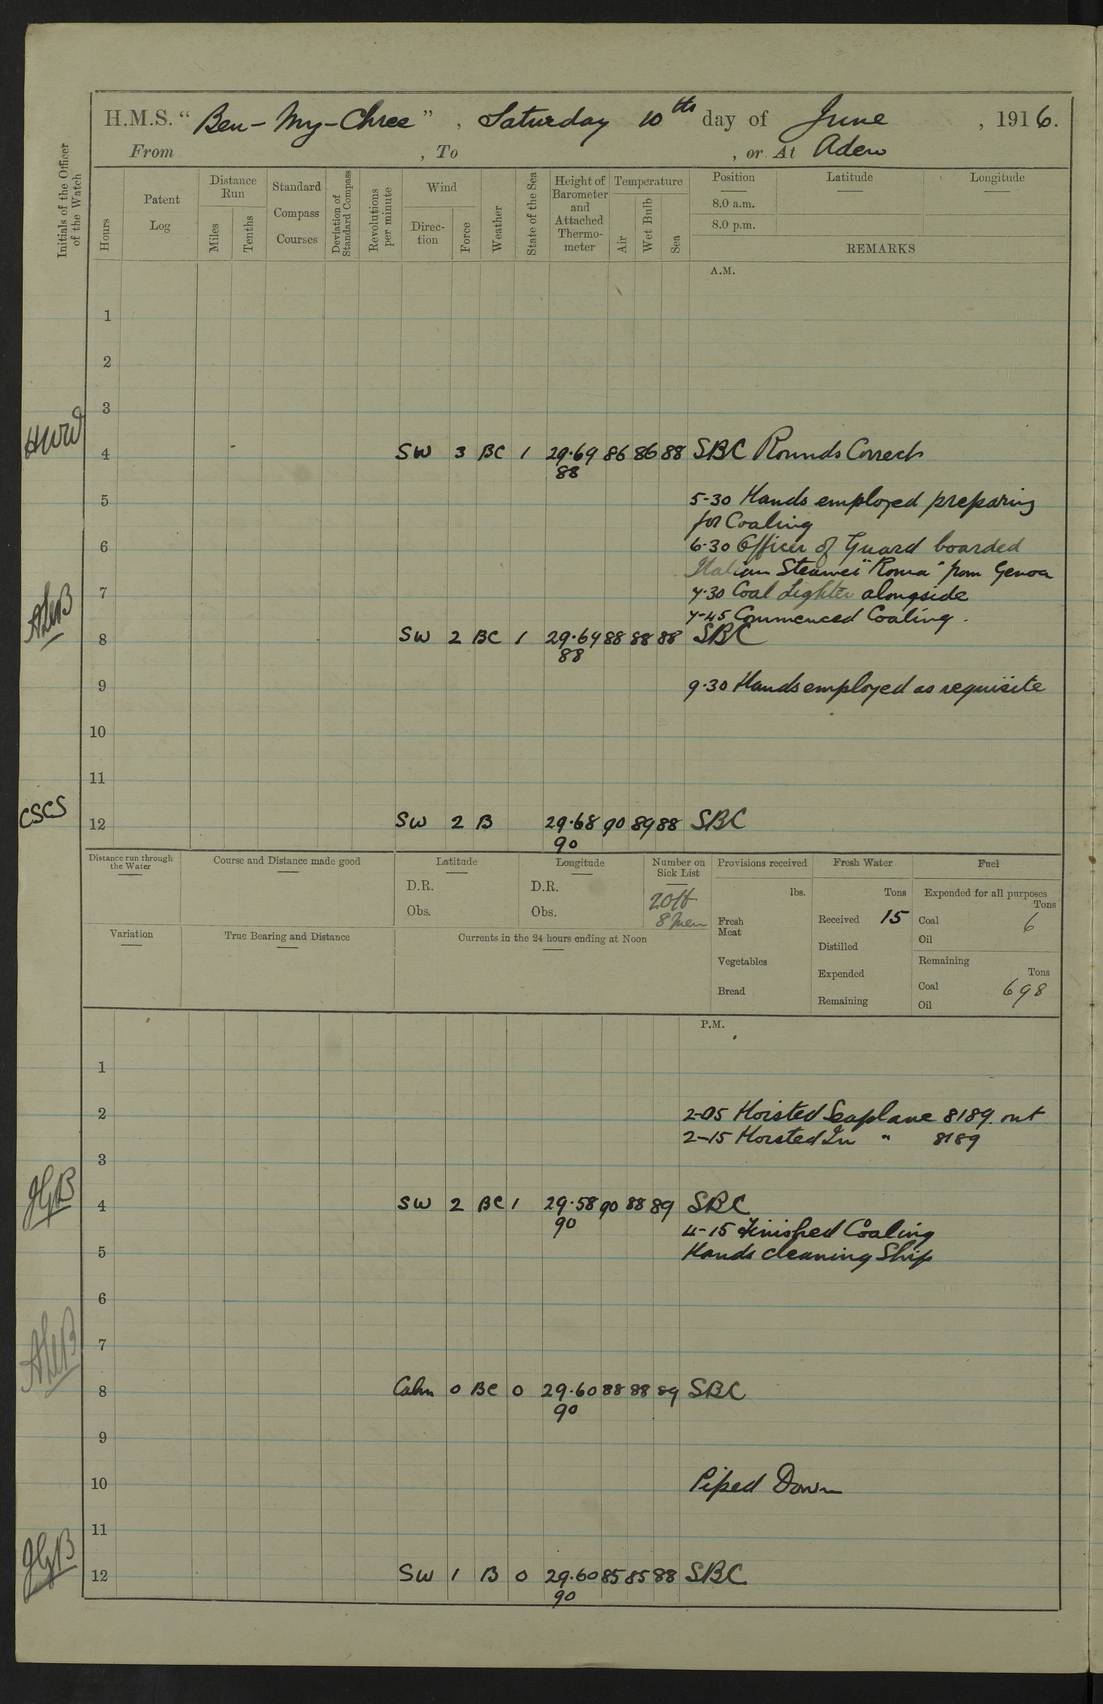 H.M.S. "Ben-My-Chree", Saturday 10th day of June, 1916.
From , To , or At Aden
Initials of the Officer of the Watch
Hours
Patent Log
Distance Run
Miles
Tenths
Standard Compass Courses
Deviation of Standard Compass
Revolutions per minute
Wind
Direction
Force
Weather
State of the Sea
Height of Barometer and Attached Thermometer
Temperature
Air
Wet Bulb
Sea
Position Latitude Longitude
8.0 a.m.
8.0 p.m.
REMARKS
A.M.
1
2
3
HWW
4 SW 3 BC 1 29.69 86 86 88 SBC Rounds Correct
88
5 5-30 Hands employed preparing
for Coaling
6 6-30 Officer of Guard boarded
Italian Steamer "Roma" from Genoa
7 7-30 Coal Lighter alongside
7-45 Commenced Coaling.
8 SW 2 BC 1 29.69 88 88 88 SBC
88
9 9-30 Hands employed as requisite
10
11
CSCS
12 SW 2 B 29.68 90 89 88 SBC
90
Distance run through the Water
Course and Distance made good
Latitude
D.R.
Obs.
Longitude
D.R.
Obs.
Number on Sick List
2 Off
8 Men
Variation
True Bearing and Distance
Currents in the 24 hours ending at Noon
Provisions received
lbs.
Fresh Meat
Vegetables
Bread
Fresh Water
Tons
Received 15
Distilled
Expended
Remaining
Fuel
Expended for all purposes
Tons
Coal 6
Oil
Remaining
Tons
Coal 698
Oil
P.M.
1
2 2-05 Hoisted Seaplane 8189 out
2-15 Hoisted In " 8189
3
JGB
4 SW 2 BC 1 29.58 90 88 89 SBC
90
4-15 Finished Coaling
5 Hands cleaning Ship
6
7
8 Calm 0 BC 0 29.60 88 88 89 SBC
90
9
10 Piped Down
11
JGB
12 SW 1 B 0 29.60 85 85 88 SBC
90